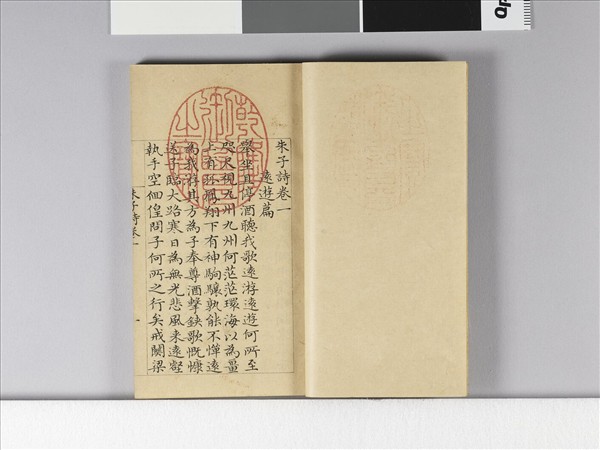 朱子詩卷一
遠遊篇
舉坐且停酒聽我歌遠游遠遊何所至
咫尺視九州九州何茫茫環海以為畺
上有孤鳳翔下有神駒驤孰能不憚遠
為我游其方為子奉尊酒擊鋏歌慨慷
送子臨大路寒日為無光悲風來遠壑
執手空徊徨問子何所之行矣戒關梁
朱子詩卷一
一
乾隆御
之